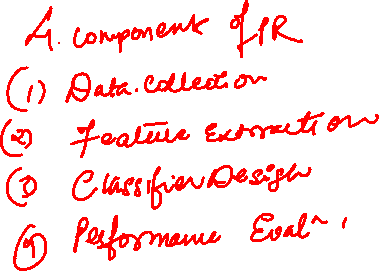 4. Component of PR
(1) Data Collection
(2) Feature Extraction
(3) Classifier Design
(4) Performance Eval~.